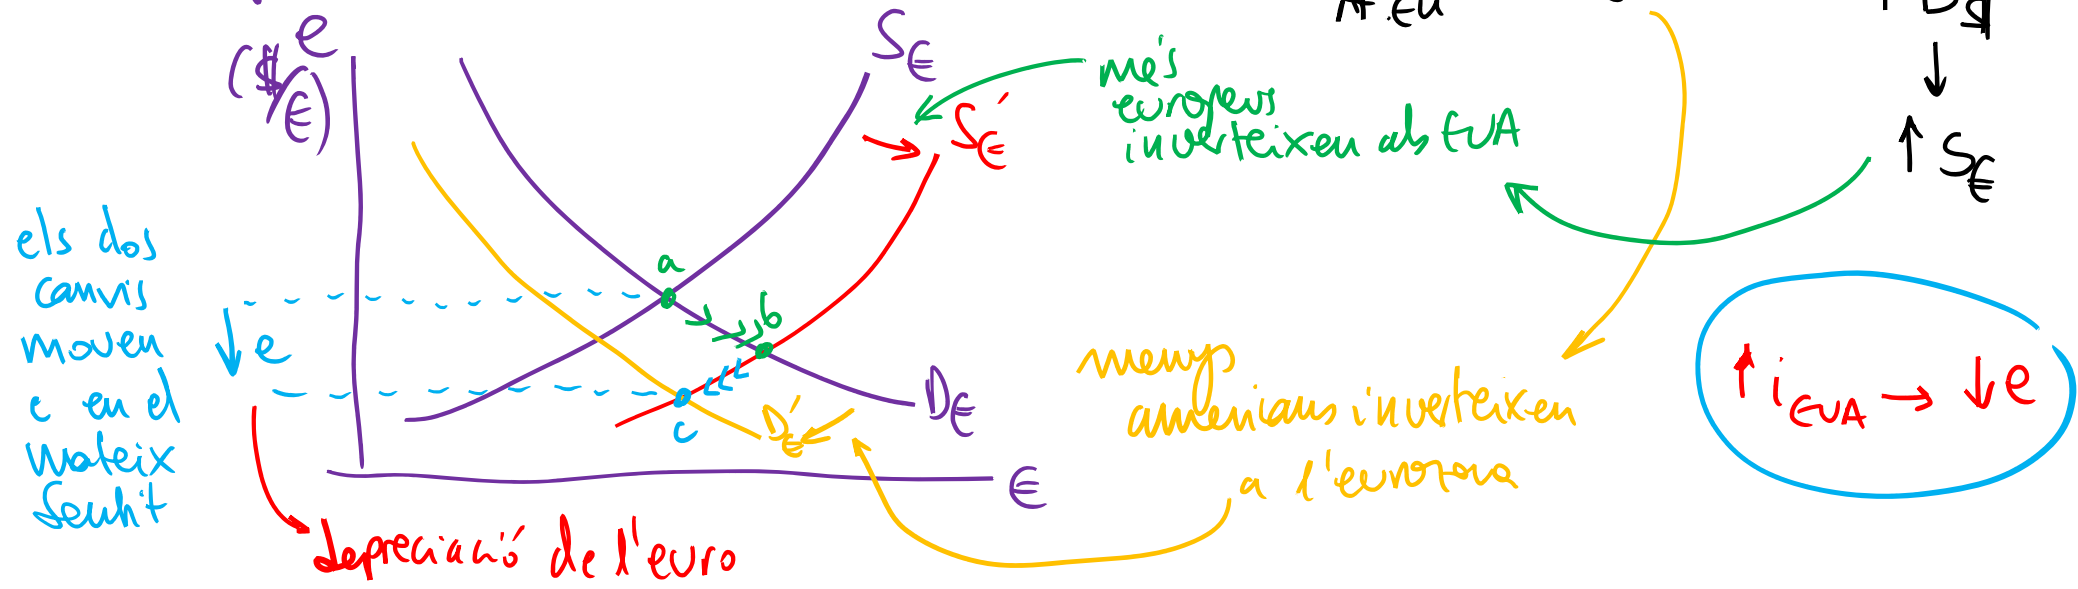 e
($/€)
S€
S€'
més
europeus
inverteixen als EUA
↓
↑ S€
els dos
canvis
moven
e en el
mateix
sentit
↓ e
a
b
c
D€
D€'
€
menys
americans inverteixen
a l'eurozona
↑ i EUA → ↓ e
depreciació de l'euro